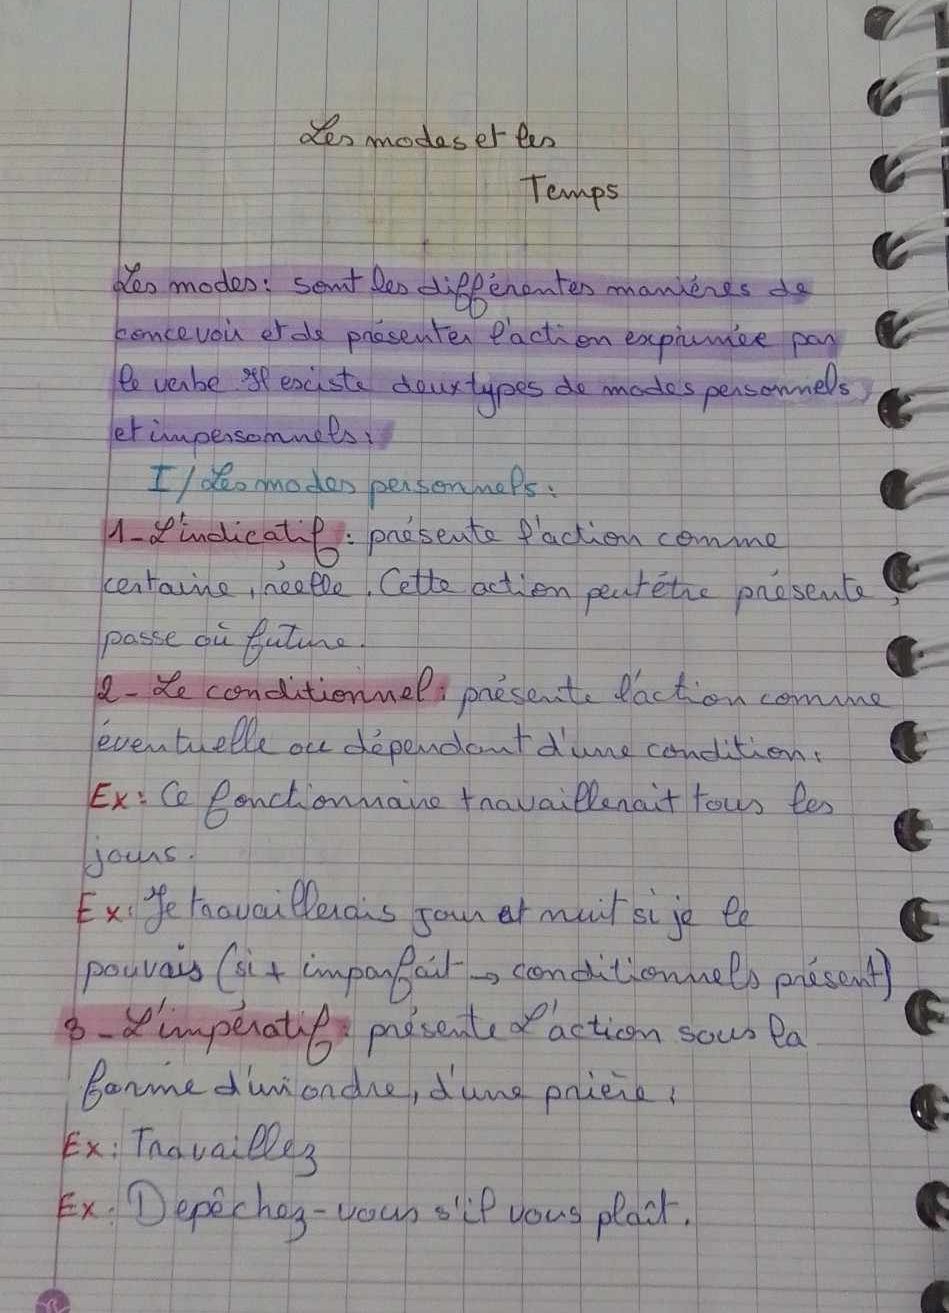 Les modes et les
Temps
Les modes : sont les différentes manières de
concevoir et de présenter l'action exprimée par
le verbe Il existe deux types de modes personnels
et impersonnels :
I/ Les modes personnels :
1- L'indicatif : présente l'action comme
certaine, réelle. Cette action peut être présente,
passe où future.
2- Le conditionnel : présente l'action comme
éventuelle ou dépendant d'une condition.
Ex : Ce fonctionnaire travaillerait tous les
jours.
Ex : Je travaillerais jour et nuit si je le
pouvais (si + imparfait → conditionnels présent)
3- L'impératif : présente l'action sous la
forme d'un ordre, d'une prière :
Ex : Travaillez
Ex : Depêchez-vous s'il vous plaît.